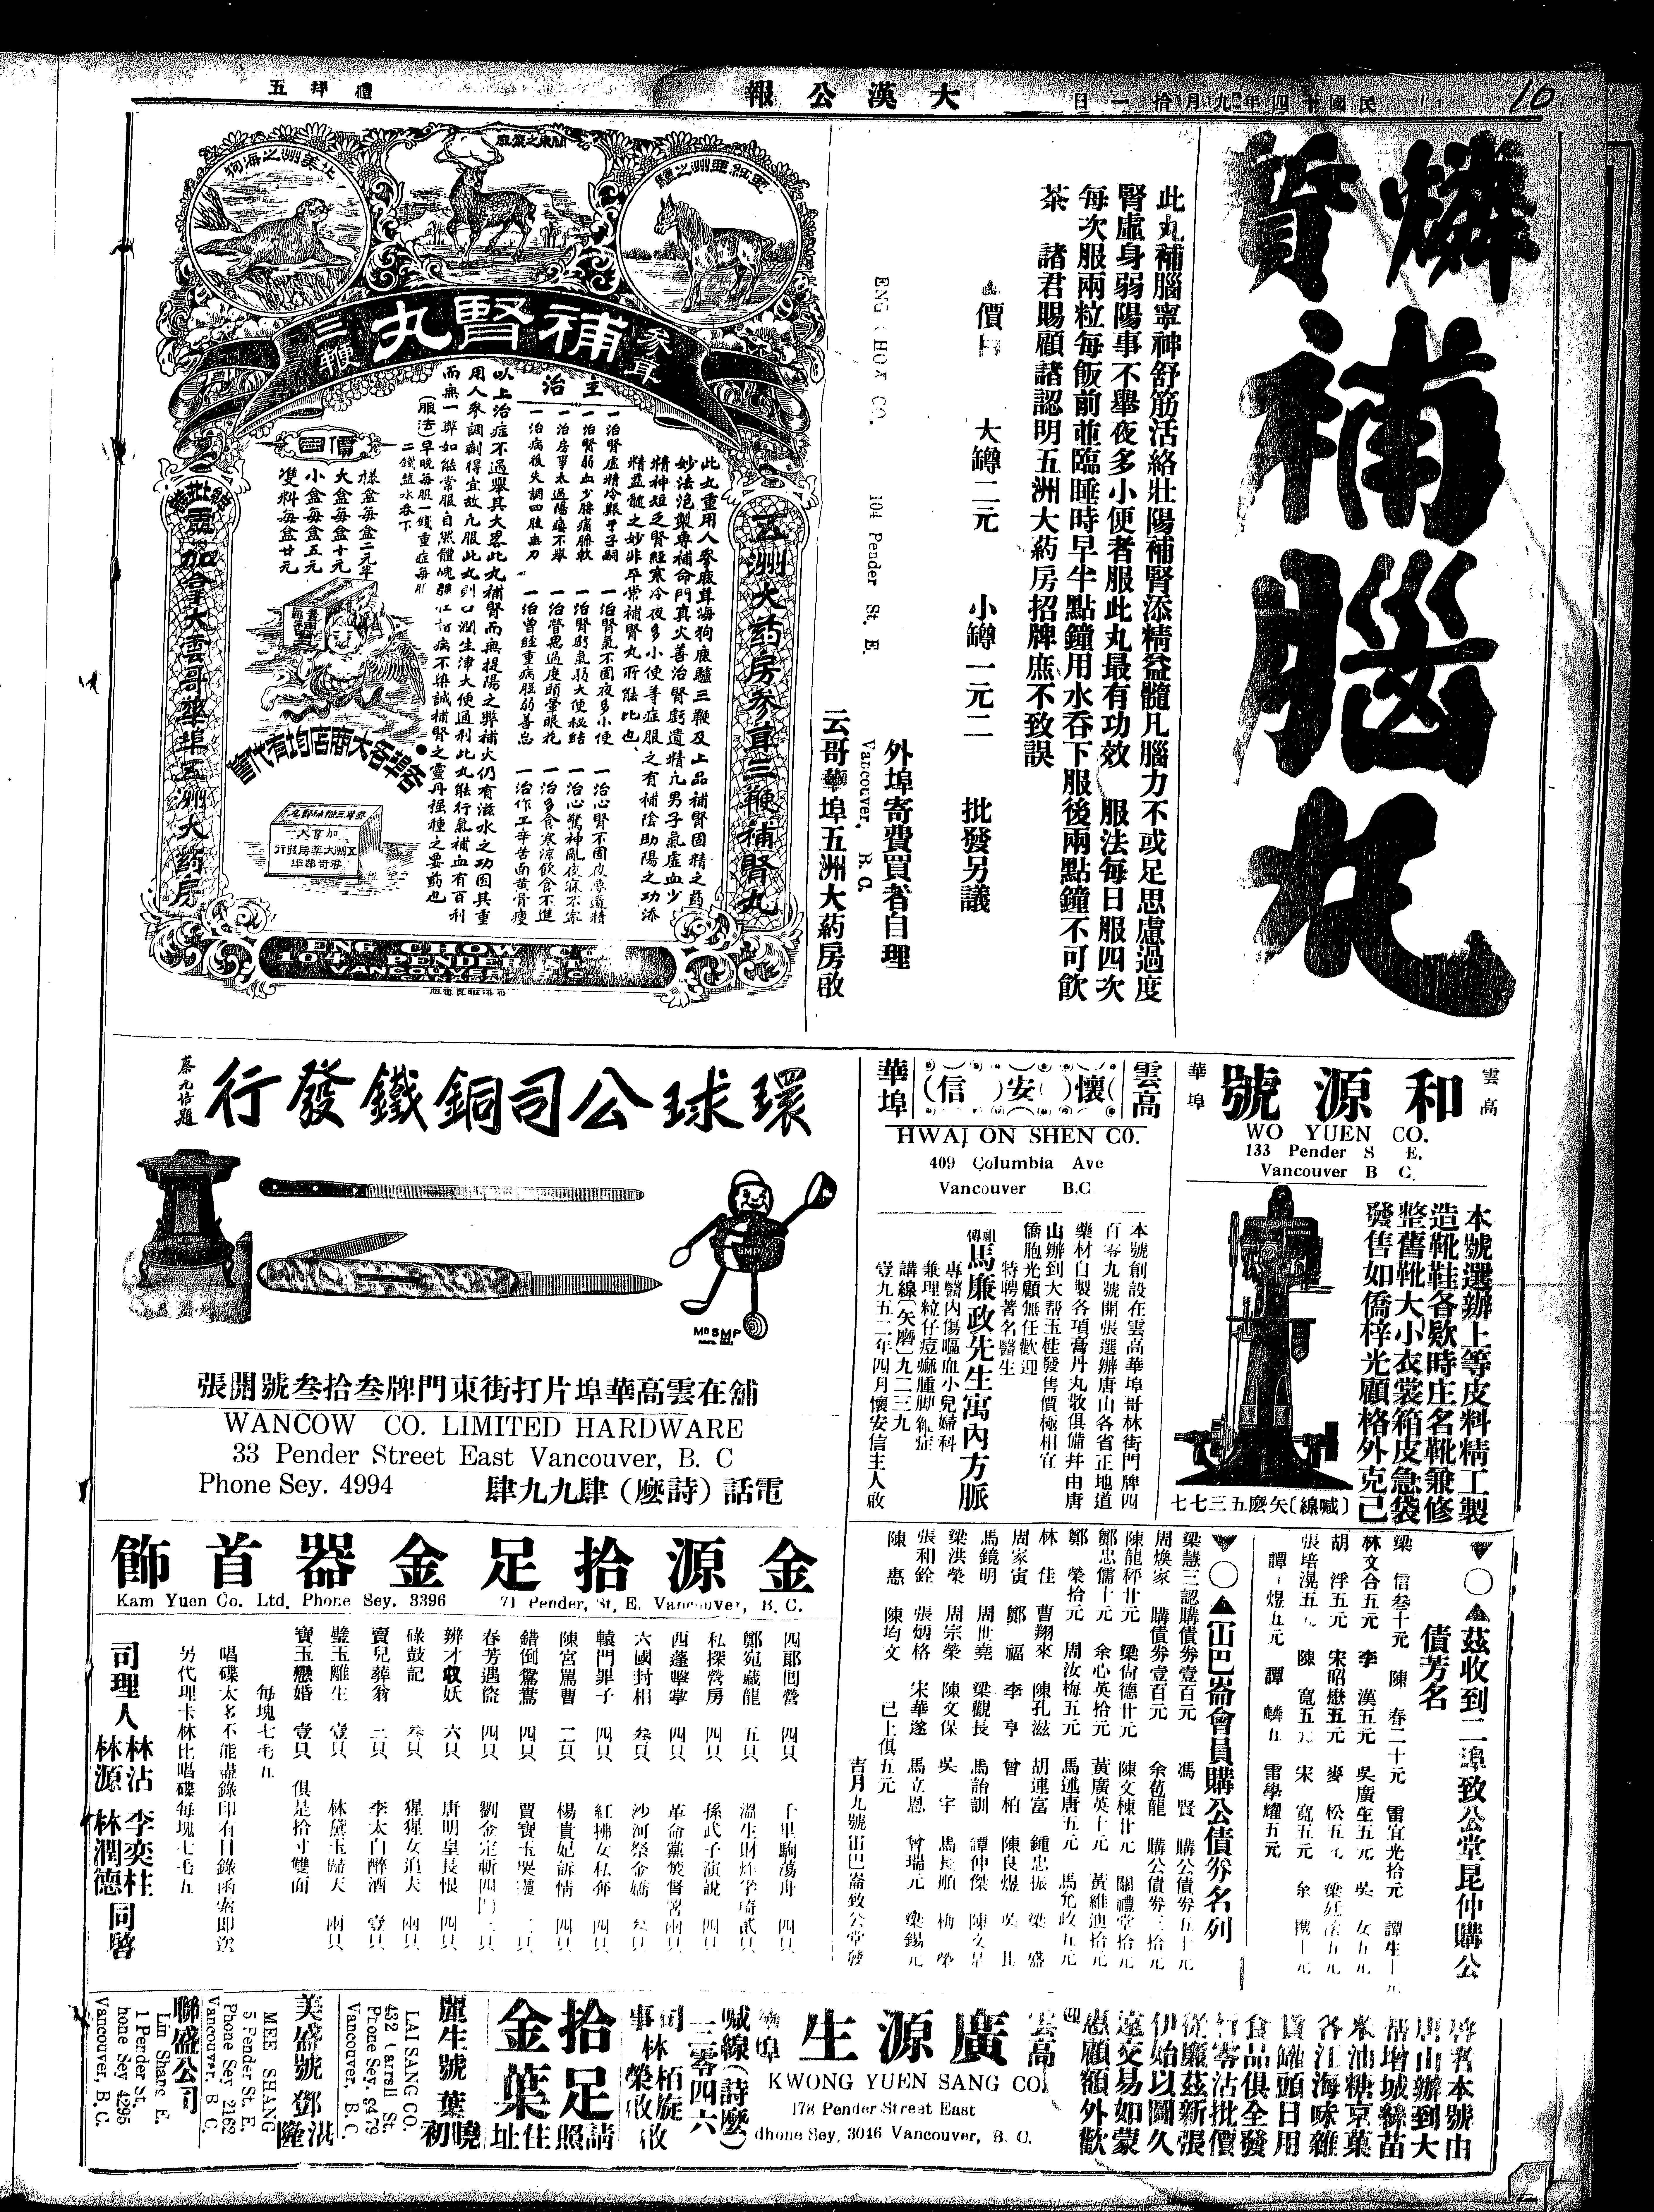 民國十四年九月拾一日
大漢公報
禮拜五
10
燐質補腦丸
此丸補腦寧神舒筋活絡壯陽補腎添精益髓凡腦力不或足思慮過度
腎虛身弱陽事不舉夜多小便者服此丸最有功效 服法每日服四次
每次服兩粒每飯前並臨睡時早半點鐘用水吞下服後兩點鐘不可飲
茶 諸君賜顧諸認明五洲大葯房招牌庶不致誤
價目 大罇二元 小罇一元二 批發另議
外埠寄費買者自理
ENG CHOW CO. 104 Pender St. E. Vancouver. B.C.
云哥華埠五洲大葯房啟
北美洲之海狗
關東之鹿
參茸
補腎丸
三鞭
主治
五洲大葯房參茸三鞭補腎丸
此丸重用人參鹿茸海狗鹿驢三鞭及上品補腎固精之葯
妙法泡製專補命門真火善治腎虧遺精凡男子氣虛血少
精神短乏腎經寒冷夜多小便等症服之有補陰助陽之功添
精益髓之妙非平常補腎丸所能比也
一治腎虛精冷艱于子嗣 一治腎氣不固夜多小便 一治心腎不固夜夢遺精
一治腎弱血少腰痛膝軟 一治腎虧氣弱大便秘結 一治心驚神亂夜寐不寧
一治房事太過陽痿不舉 一治營思過度頭暈眼花 一治多食寒涼飲食不進
一治病後失調四肢無力 一治曾經重病腦弱善忘 一治作工辛苦面黃骨瘦
以上治症不過舉其大畧此丸補腎而無提陽之弊補火仍有滋水之功因其重
用人參調劑得宜故凡服此丸則口潤生津大便通利此丸能行氣補血有百利
而無一弊如能常服自然體魄強壯百病不染誠補腎之靈丹強種之要葯也
(服法)早晚每服一錢重症每服
二錢鹽水吞下
價目
樣盒每盒二元半
大盒每盒十元
小盒每盒五元
雙料每盒廿元
各埠各大商店均有代售
加拿大雲哥華埠五洲大葯房
ENG CHOW CO.
104 PENDER ST.
VANCOUVER B.C.
雲高
和源號
華埠
WO YUEN CO.
133 Pender S E.
Vancouver B C.
本號選辦上等皮料精工製
造靴鞋各欵時庄名靴兼修
整舊靴大小衣裳箱皮急袋
發售如僑梓光顧格外克己
(喊線)矢麼五三七七
雲高
懷安信
華埠
HWAI ON SHEN CO.
409 Columbia Ave
Vancouver B.C
本號創設在雲高華埠哥林街門牌四
百零九號開張選辦唐山各省正地道
藥材自製各項膏丹丸散俱備幷由唐
山辦到大帮玉桂發售價極相宜
僑胞光顧無任歡迎
特聘著名醫生
祖傳馬廉政先生寓內方脈
專醫內傷嘔血小兒婦科
兼理粒仔痘癲腫脚種症
講線(矢磨)九二三九
壹九五二年四月懷安信主人啟
環球公司銅鐵發行
Mr SMP
舖在雲高華埠片打街東門牌叁拾叁號開張
WANCOW CO. LIMITED HARDWARE
33 Pender Street East Vancouver, B. C
Phone Sey. 4994
電話(詩麼)肆九九肆
茲收到二埠致公堂昆仲購公
債芳名
梁 信叁十元 陳 春二十元 雷宜光拾元
林文合五元 李 漢五元 吳廣生五元
胡 浮五元 宋昭懋五元 麥 松五元
張培滉五元 陳 寬五元 宋 寬五元
譚 煜五元 譚 麟五 雷學耀五元
㟀巴崙會員購公債券名列
梁慧三認購債券壹百元 馮 賢 購公債券五十元
周煥家 購債券壹百元 余苞龍 購公債券三拾元
陳龍秤廿元 梁尙德廿元 陳文棟廿元 關禮堂拾元
鄭忠儒十元 余心英拾元 黃廣英十元 黃維迪拾元
鄭 榮拾元 周汝梅五元 馬述唐五元 馬允政五元
林 佳 曹翔來 陳孔滋 胡連富 鍾忠振 梁 盛
周家寅 鄭 福 李 亨 曾 柏 陳良煜
馬鏡明 周世堯 梁觀長 馬詒訓 譚仲傑
梁洪榮 周宗榮 陳文保 吳 宇 馬長順 梅 榮
張和銓 張炳格 宋華遂 馬立恩 曾瑞元 梁錫元
陳 惠 陳均文 已上俱五元
吉月九號㟀巴崙致公堂發
金源拾足金器首飾
Kam Yuen Co. Ltd. Phone Sey. 3396 71 Pender, St. E. Vancouver, B. C.
四郞囘營 四只 千里駒蕩舟 四只
鄭宛藏龍 五只
私探營房 四只 孫武子演說 四只
西蓬擊掌 四只
六國封相 叁只 沙河祭金嬌 叁只
轅門罪子 四只 紅拂女私奔 四只
陳宮罵曹 二只 楊貴妃訴情 四只
錯倒鴛鴦 四只 賈寶玉哭靈 二只
春芳遇盜 四只
辨才収妖 六只 唐明皇長恨 四只
碌鼓記 叁只 猩猩女追夫 兩只
賣兒葬翁 二只 李太白醉酒 壹只
璧玉離生 壹只 林黛玉歸天 兩只
寶玉戀婚 壹只 俱是拾寸雙面
每塊七毛五
唱碟太多不能盡錄印有目錄函索即送
另代理卡林比唱碟每塊七毛五
司理人 林沾 李奕柱 林源 林潤德 同啓
啓者本號由
唐山辦到大
帮增城絲苗
米油糖京菓
各江海味雜
貨罐頭日用
食品俱全發
售零沽批價
從廉茲新張
伊始以圖久
遠交易如蒙
惠顧額外歡
迎
雲高
廣源生
華埠
KWONG YUEN SANG CO.
178 Pender Street East
dhone Sey, 3046 Vancouver, B. C.
喊線(詩麼)三零四六
司事 林栢旋 榮啟
拾足金葉
請照住址
麗生號 葉曉初
LAI SANG CO.
432 Carrall St.
Phone Sey. 8479
Vancouver, B.C
美盛號 鄧洪隆
MEE SHANG
5 Pender St. E.
Phone Sey 2162
Vancouver. B. C.
聯盛公司
Lin Shang E.
1 Perder St.
hone Sey 4295
Vancouver, B. C.